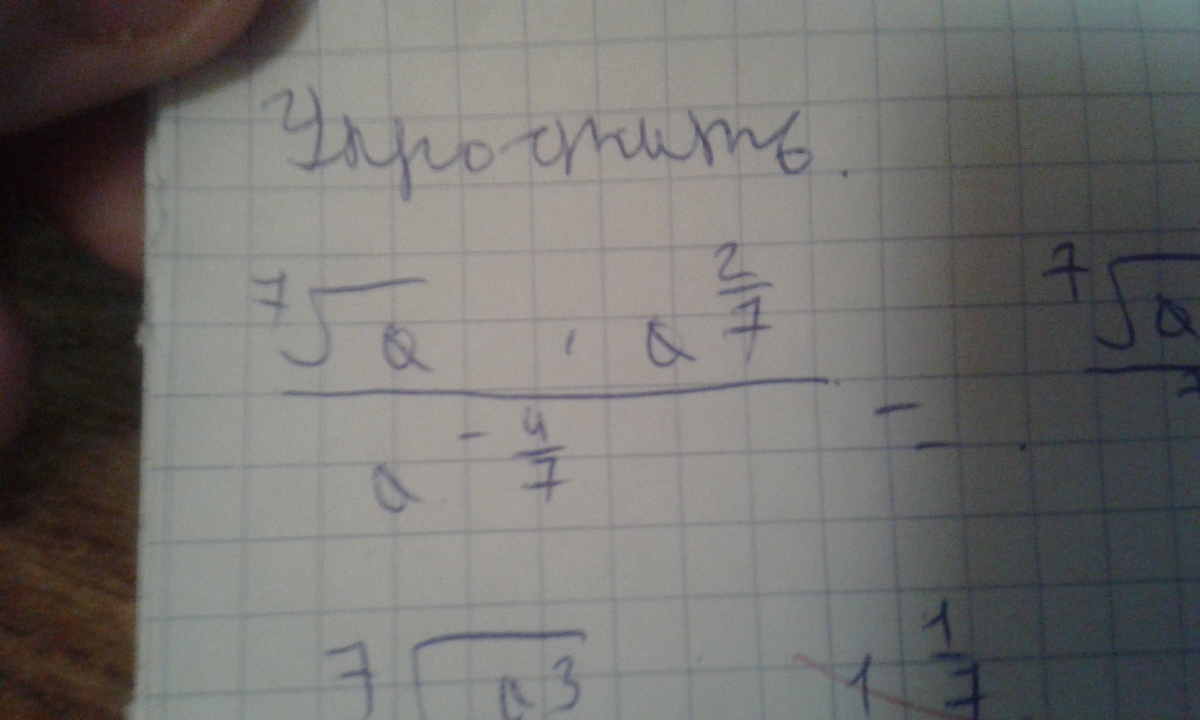 Упростить.
⁷√a · a^(2/7) / a^(-4/7) = ⁷√a
⁷√a3 1 1/7